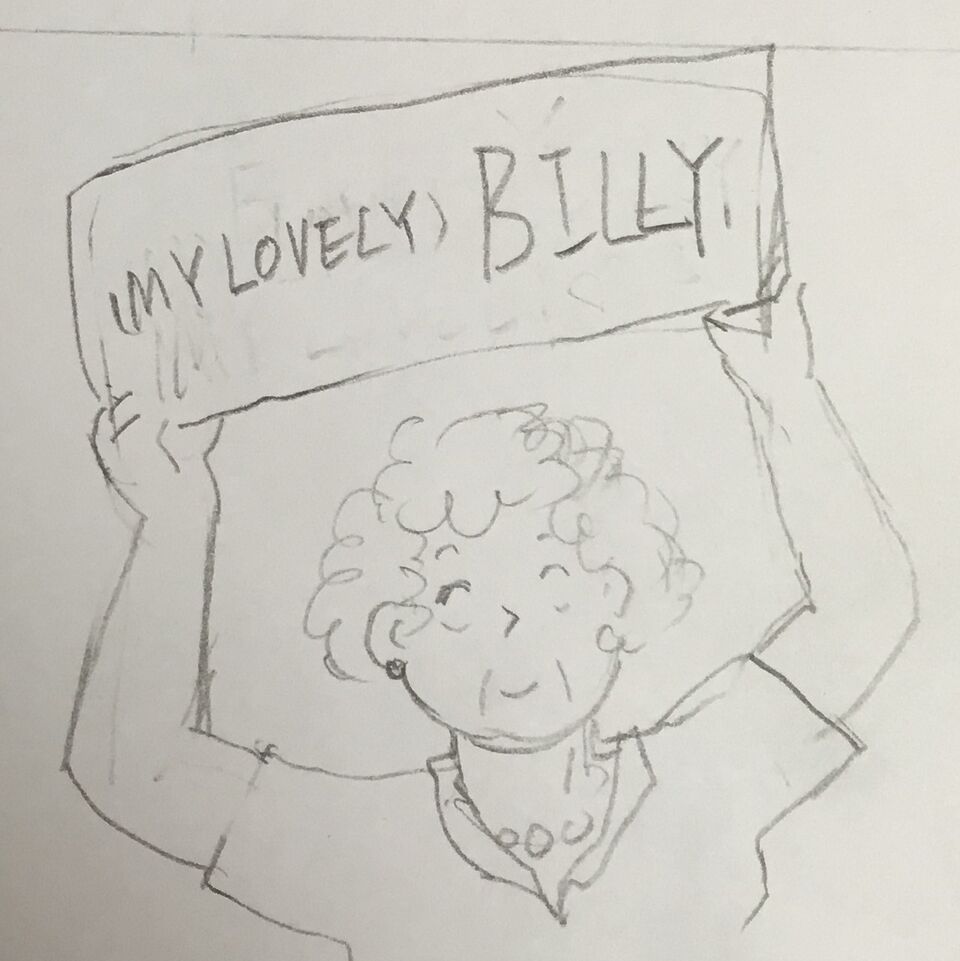 (MY LOVELY) BILLY.